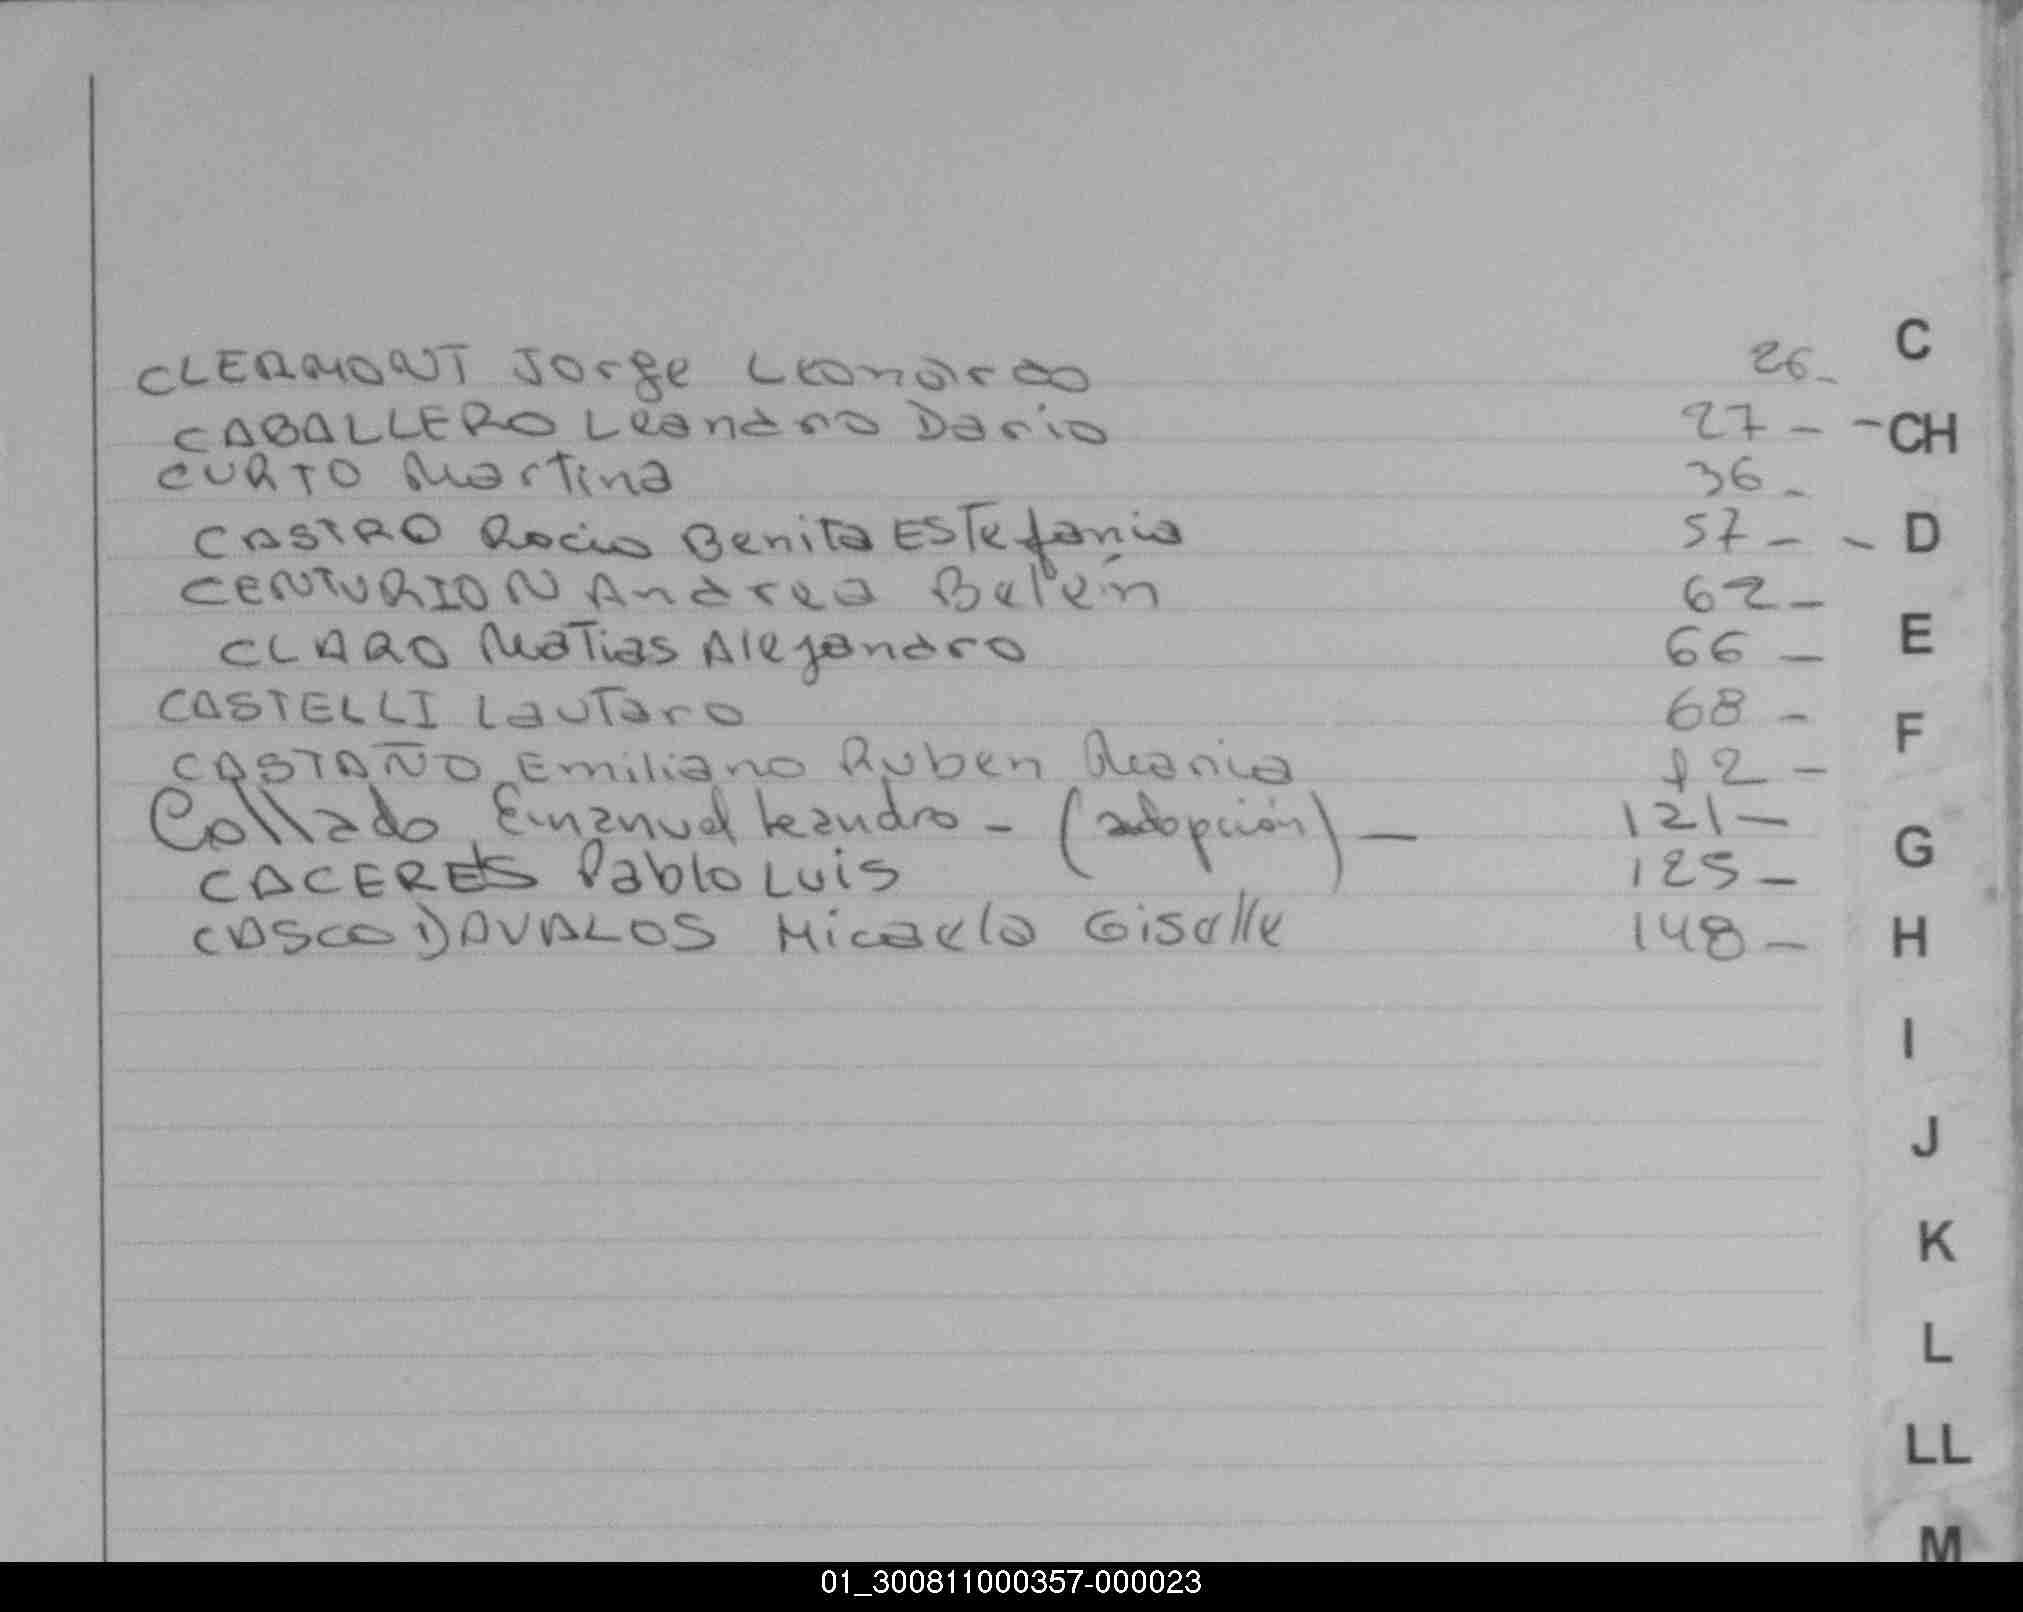 CLERMONT Jorge Leonardo 26-
C
CABALLERO Leandro Dario 27-
-CH
CURTO Martina 36-
CASTRO Rocio Benita EStefania 57-
- D
CENTURION Andrea Belén 62-
E
CLARO Matias Alejandro 66-
CASTELLI Lautaro 68-
F
CASTAÑO Emiliano Ruben Maria
Collado Emanuel Leandro - (adopción) - 121-
G
CACERES Pablo Luis 125-
CASCO DAVALOS Micaela Giselle 148-
H
I
J
K
L
LL
M
01_300811000357-000023